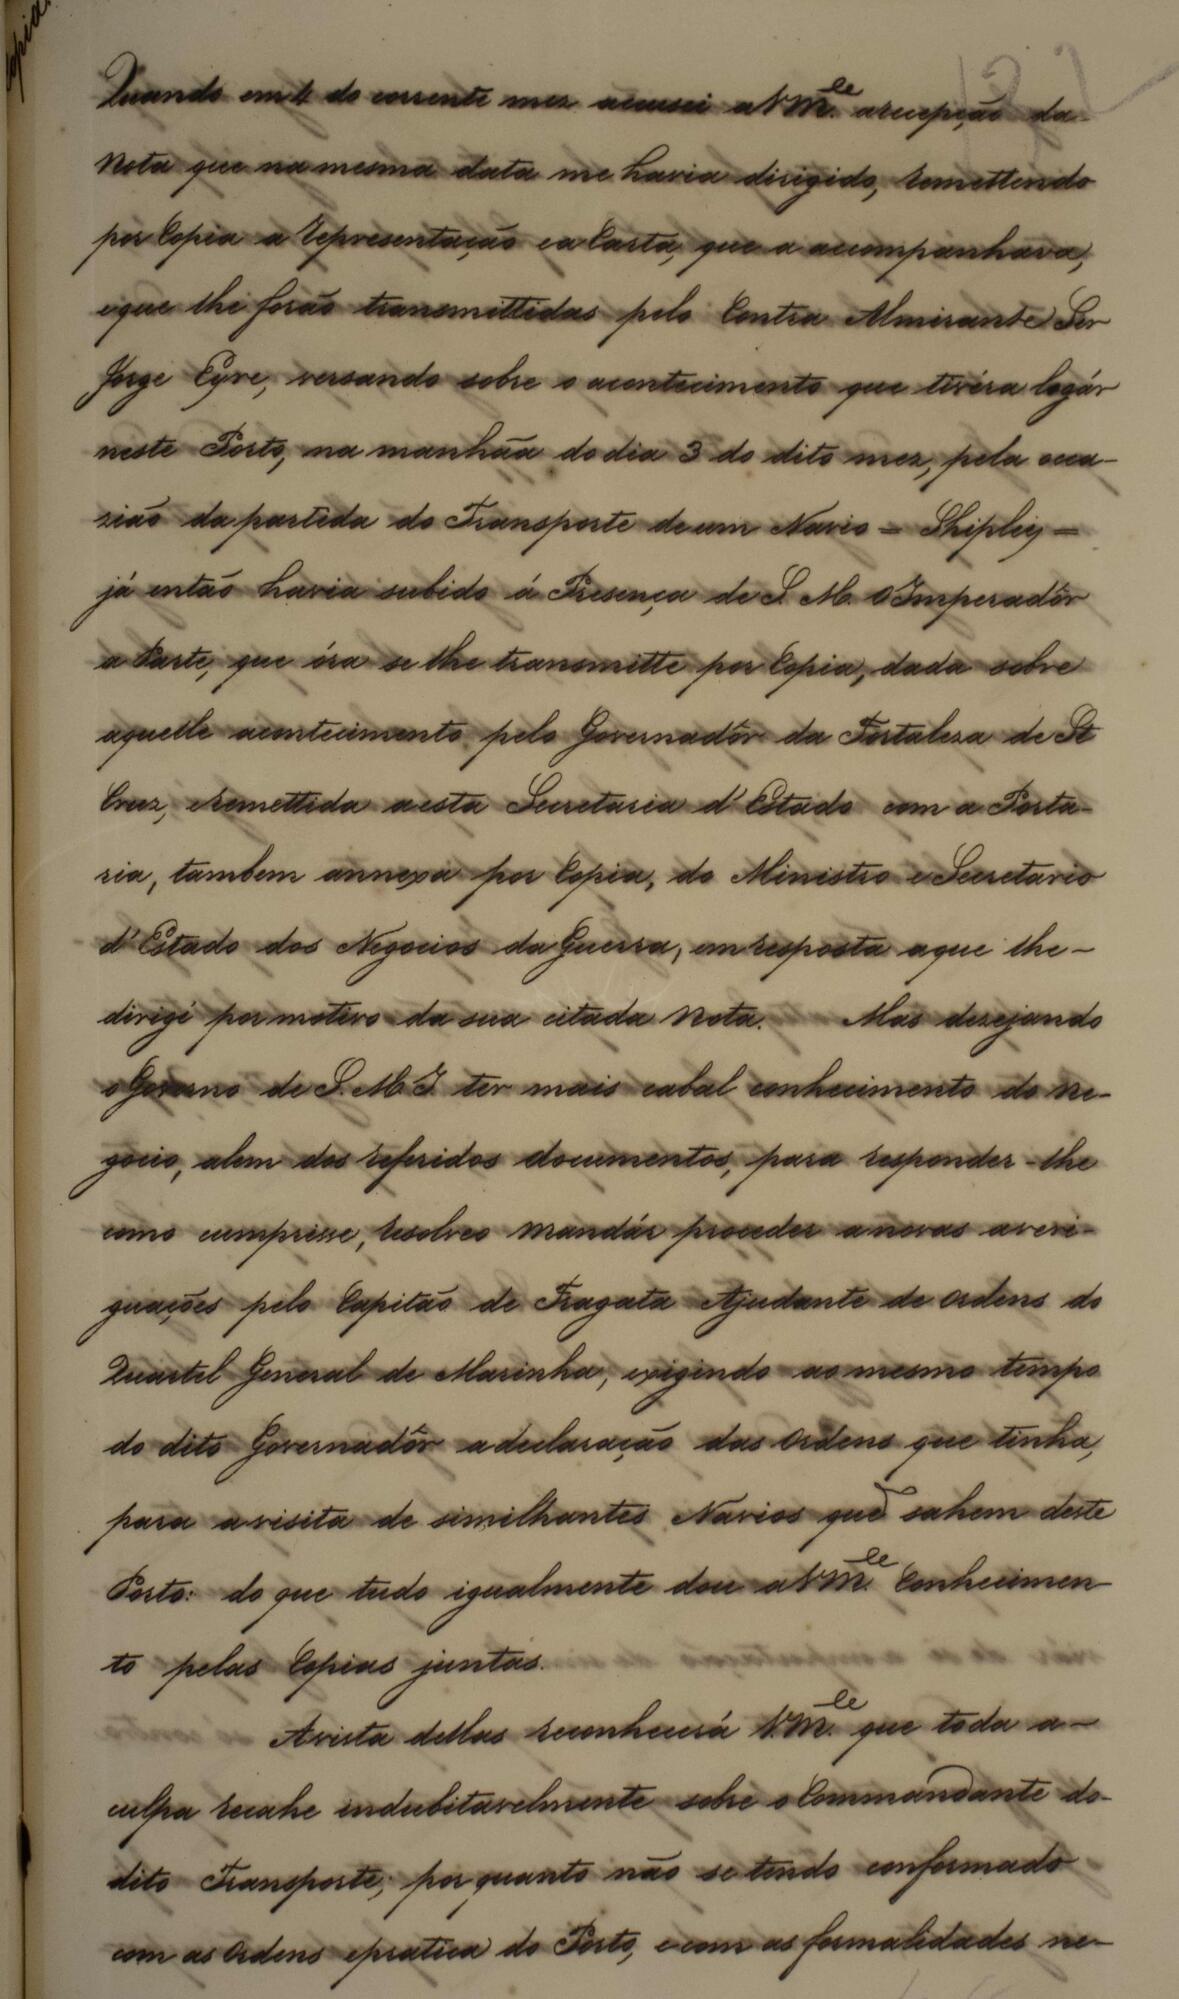 Copia.
Quando em 4 do corrente mez accusei a V Mce. a recepção da
Nota que na mesma data me havia dirigido, remettendo
por Copia a Representação e a Carta, que a accompanhava,
e que lhe forão transmittidas pelo Contra Almirante Ser
Jorge Eyre, versando sobre o acontecimento que tivéra logár
neste Porto, na manhãa do dia 3 do dito mez, pela occa-
zião da partida do Transporte de um Navio = Shipley =
já então havia subido á Presença de S. M. O Imperadôr
a Parte, que óra se lhe transmitte por Copia, dada sobre
aquelle acontecimento pelo Governadôr da Fortaleza de Sta
Cruz, e remettida a esta Secretaria d'Estado com a Porta-
ria, tambem annexa por Copia, do Ministro e Secretario
d'Estado dos Negocios da Guerra, em resposta a que lhe-
dirigi por motivo da sua citada Nota. Mas dezejando
o Governo de S. M. I. ter mais cabal conhecimento do ne-
gocio, alem dos referidos documentos, para responder-lhe
como cumprisse, resolveo mandár proceder a novas averi-
guações pelo Capitão de Fragata Ajudante de Ordens do
Quartel General de Marinha, exigindo ao mesmo tempo
do dito Governadôr a declaração das Ordens que tinha,
para a visita de similhantes Navios que sahem deste
Porto: do que tudo igualmente dou a V Mce. Conhecimen-
to pelas Copias juntas.
Avista dellas reconhecerá V. Mce. que toda a-
culpa recahe indubitavelmente sobre o Commandante do-
dito Transporte; por quanto não se tendo conformado
com as Ordens e pratica do Porto, e com as formalidades ne-